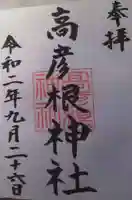 奉拝
高彦根神社
令和二年九月二十六日